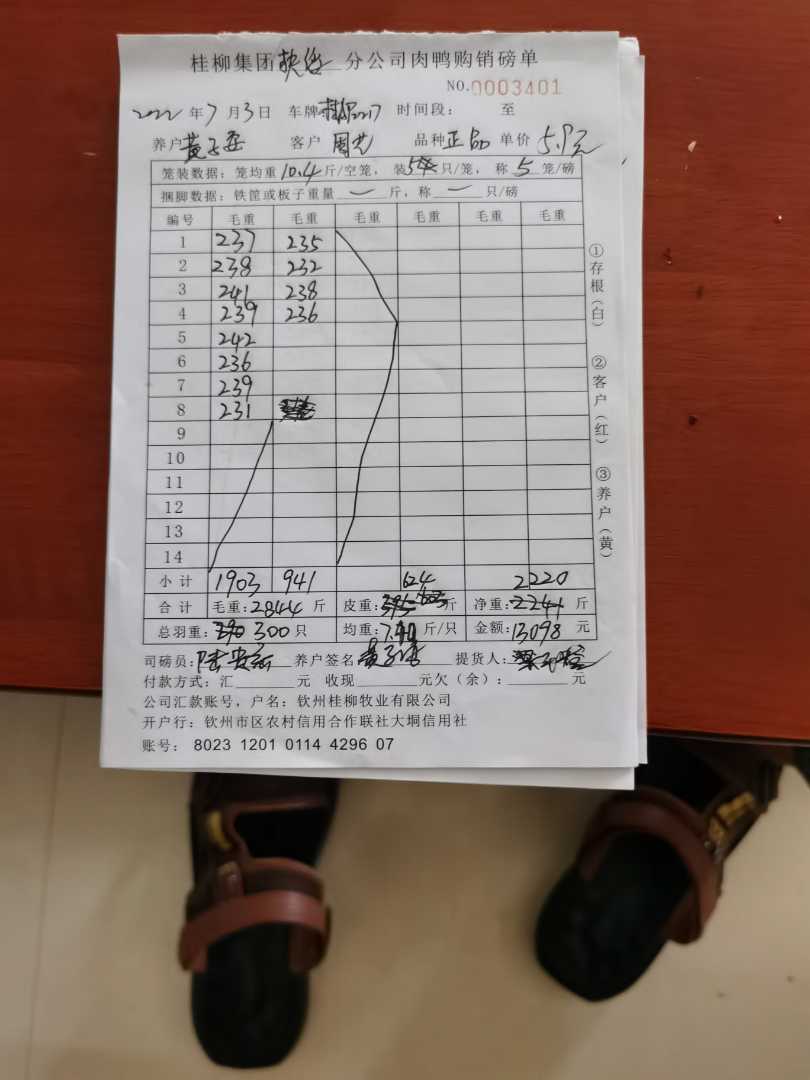 桂柳集团钦州分公司肉鸭购销磅单
NO.0003401
2022年7月3日 车牌 2217 时间段： 至
养户 黄 客户 周 品种 正品 单价 5.9元
笼装数据：笼均重10.4斤/空笼，装5只/笼，称5笼/磅
捆脚数据：铁筐或板子重量一斤，称一只/磅
编号 毛重 毛重 毛重 毛重 毛重 毛重
1 237 235
2 238 232
3 241 238
4 239 236
5 242
6 236
7 239
8 231
9
10
11
12
13
14
小计 1903 941 624 2220
合计 毛重：2844斤 皮重： 斤 净重：2241斤
总羽重：290 300只 均重：7.40斤/只 金额：13098元
司磅员： 养户签名 提货人：
付款方式：汇 元 收现 元欠（余）： 元
公司汇款账号，户名：钦州桂柳牧业有限公司
开户行：钦州市区农村信用合作联社大垌信用社
账号： 8023 1201 0114 4296 07
①存根（白）
②客户（红）
③养户（黄）